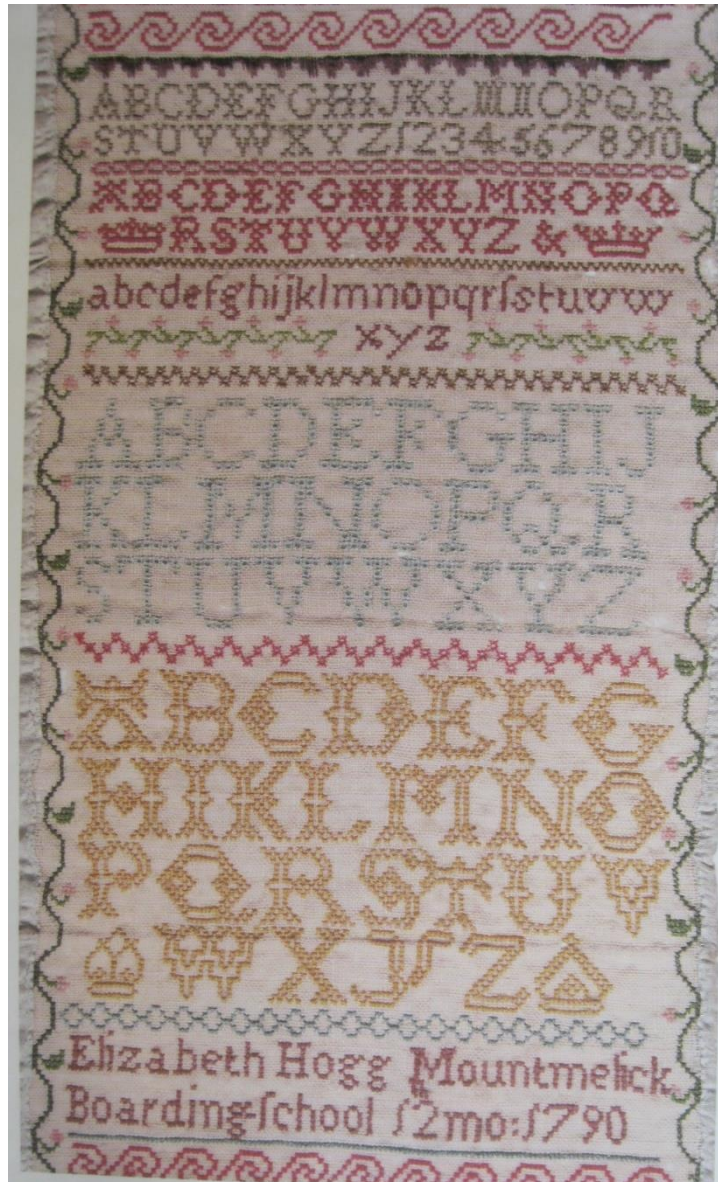 ABCDEFGHIJKLMNOPQR
STUVWXYZ12345678910
ABCDEFGHIKLMNOPQ
RSTUVWXYZ &
abcdefghijklmnopqrſstuvw
xyz
ABCDEFGHIJ
KLMNOPQR
STUVWXYZ
ABCDEFG
HIKLMNO
PQRSTUV
WXYZ
Elizabeth Hogg Mountmelick
Boarding-ſchool 12th mo: 1790